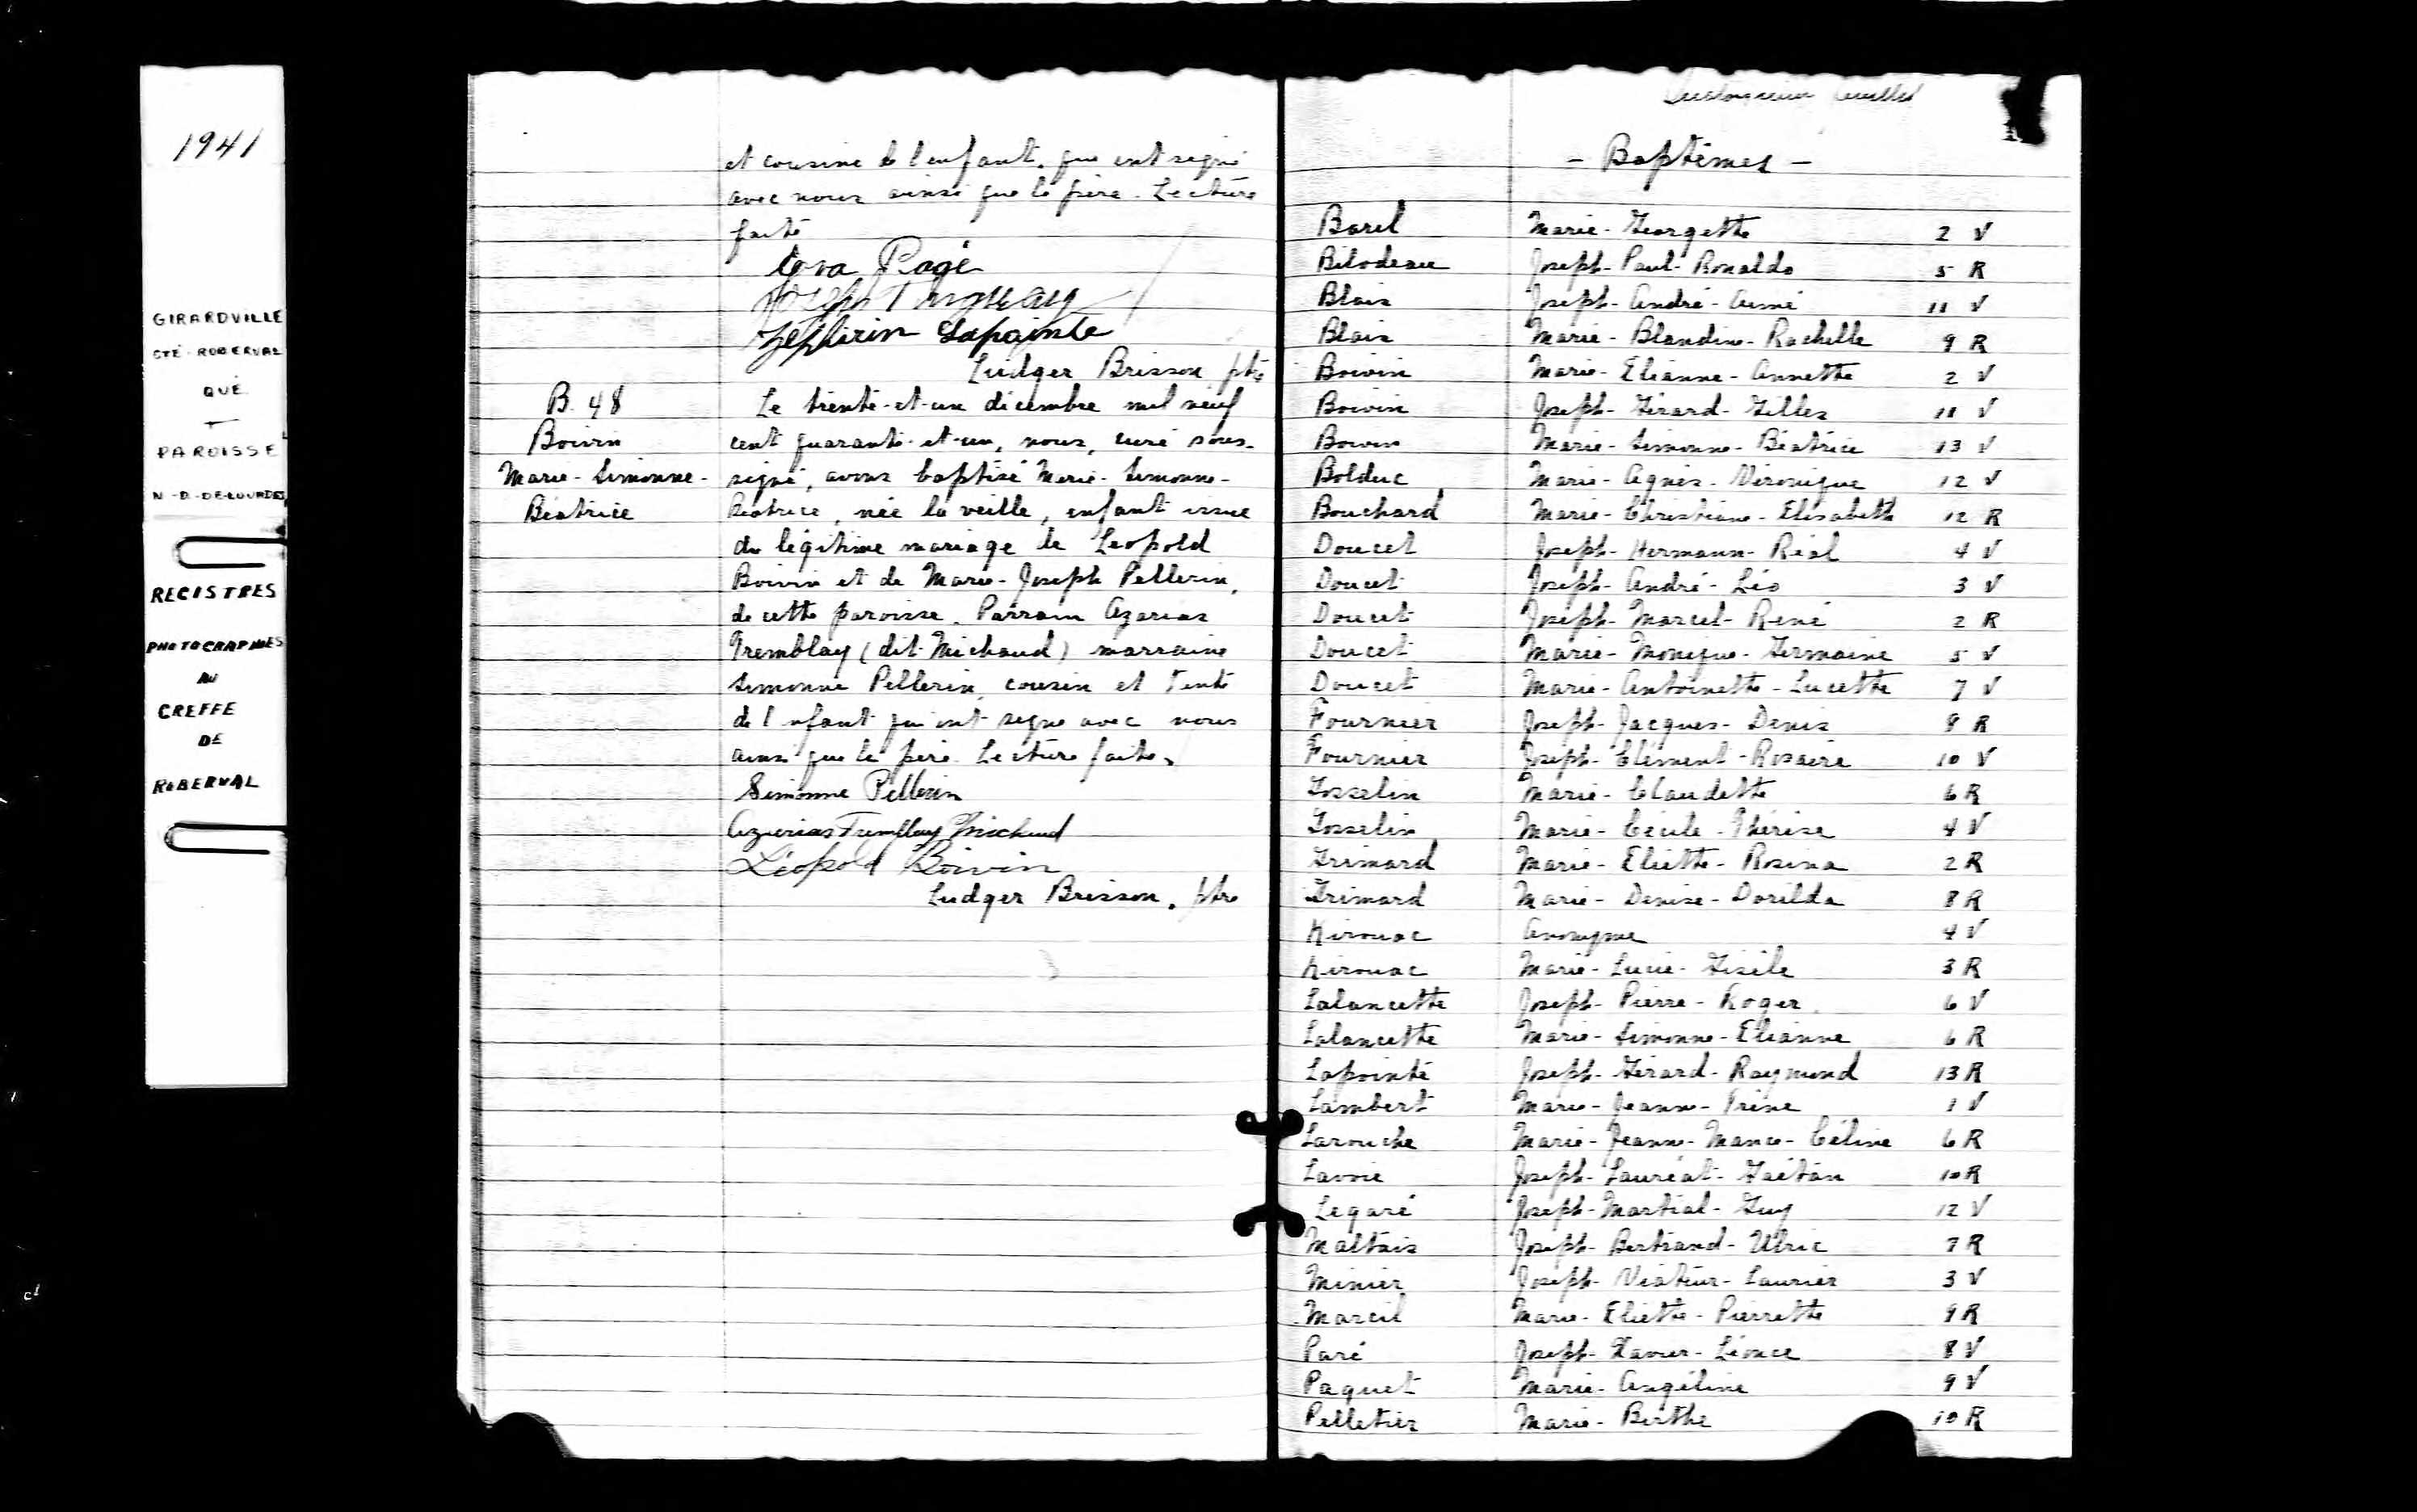 1941
GIRARDVILLE
CTÉ ROBERVAL
QUÉ.
PAROISSE
N.-D.-DE-LOURDES
REGISTRES
PHOTOGRAPHIÉS
AU
GREFFE
DE
ROBERVAL
et cousine de l'enfant, qui ont signé
avec nous ainsi que le père. Lecture
faite
Pagé
Joseph
Zéphirin Lapointe
Ludger Brisson ptre
B. 48
Boivin
Marie-Simonne-
Béatrice
Le trente-et-un décembre mil neuf
cent quarante-et-un, nous, curé sous-
signé, avons baptisé Marie-Simonne-
Béatrice, née la veille, enfant issue
du légitime mariage de Léopold
Boivin et de Marie-Joseph Pellerin,
de cette paroisse. Parrain Azarias
Tremblay (dit Michaud) marraine
Simonne Pellerin, cousin et tente
de l'enfant qui ont signé avec nous
ainsi que le père. Lecture faite.
Simonne Pellerin
Azarias Tremblay Michaud
Léopold Boivin
Ludger Brisson, ptre
feuillet
- Baptêmes -
Baril Marie-Georgette 2 V
Bilodeau Joseph-Paul-Ronaldo 5 R
Blais Joseph-André-Aimé 11 V
Blais Marie-Blandine-Rachelle 9 R
Boivin Marie-Elianne-Annette 2 V
Boivin Joseph-Gérard-Gilles 11 V
Boivin Marie-Simonne-Béatrice 13 V
Bolduc Marie-Agnès-Véronique 12 V
Bouchard Marie-Christiane-Elisabeth 12 R
Doucet Joseph-Hermann-Réal 4 V
Doucet Joseph-André-Léo 3 V
Doucet Joseph-Marcel-René 2 R
Doucet Marie-Monique-Germaine 5 V
Doucet Marie-Antoinette-Lucette 7 V
Fournier Joseph-Jacques-Denis 8 R
Fournier Joseph-Clément-Rosaire 10 V
Gosselin Marie-Claudette 6 R
Gosselin Marie-Cécile-Thérèse 4 V
Grimard Marie-Eliette-Rosina 2 R
Grimard Marie-Denise-Dorilda 8 R
Kirouac Anonyme 4 V
Kirouac Marie-Lucie-Gisèle 3 R
Lalancette Joseph-Pierre-Roger 6 V
Lalancette Marie-Simonne-Elianne 6 R
Lapointe Joseph-Gérard-Raymond 13 R
Lambert Marie-Jeanne-Irène 1 V
Larouche Marie-Jeanne-Mance-Céline 6 R
Lavoie Joseph-Lauréat-Gaétan 10 R
Legaré Joseph-Martial-Guy 12 V
Maltais Joseph-Bertrand-Ulric 7 R
Minier Joseph-Viateur-Laurier 3 V
Marcil Marie-Eliette-Pierrette 9 R
Paré Joseph-Xavier-Léonce 8 V
Paquet Marie-Angéline 9 V
Pelletier Marie-Berthe 10 R